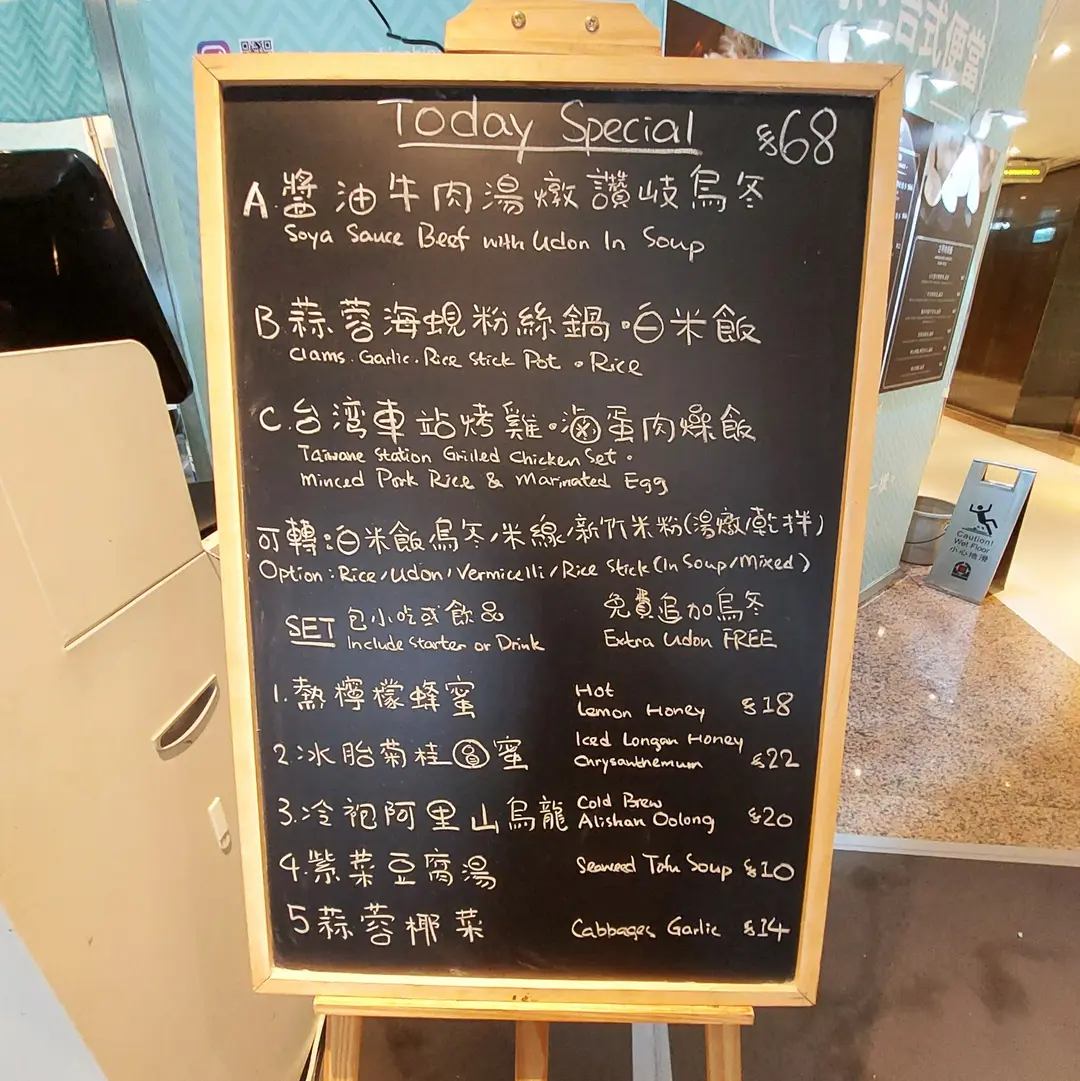 Today Special $68
A.醬油牛肉湯燉讚岐烏冬
Soya Sauce Beef with Udon In Soup
B.蒜蓉海蜆粉絲鍋•白米飯
Clams. Garlic. Rice Stick Pot • Rice
C.台湾車站烤雞•滷蛋肉燥飯
Taiwane Station Grilled Chicken Set •
Minced Pork Rice & Marinated Egg
可轉:白米飯/烏冬/米線/新竹米粉(湯燉/乾拌)
Option: Rice/Udon/Vermicelli/Rice Stick (In Soup/Mixed)
SET 包小吃或飲品
Include Starter or Drink
免費追加烏冬
Extra Udon FREE
1.熱檸檬蜂蜜 Hot Lemon Honey $18
2.冰胎菊桂圓蜜 Iced Longan Honey Chrysanthemum $22
3.冷袍阿里山烏龍 Cold Brew Alishan Oolong $20
4.紫菜豆腐湯 Seaweed Tofu Soup $10
5.蒜蓉椰菜 Cabbages Garlic $14
台式便當
Caution!
Wet Floor
小心地滑